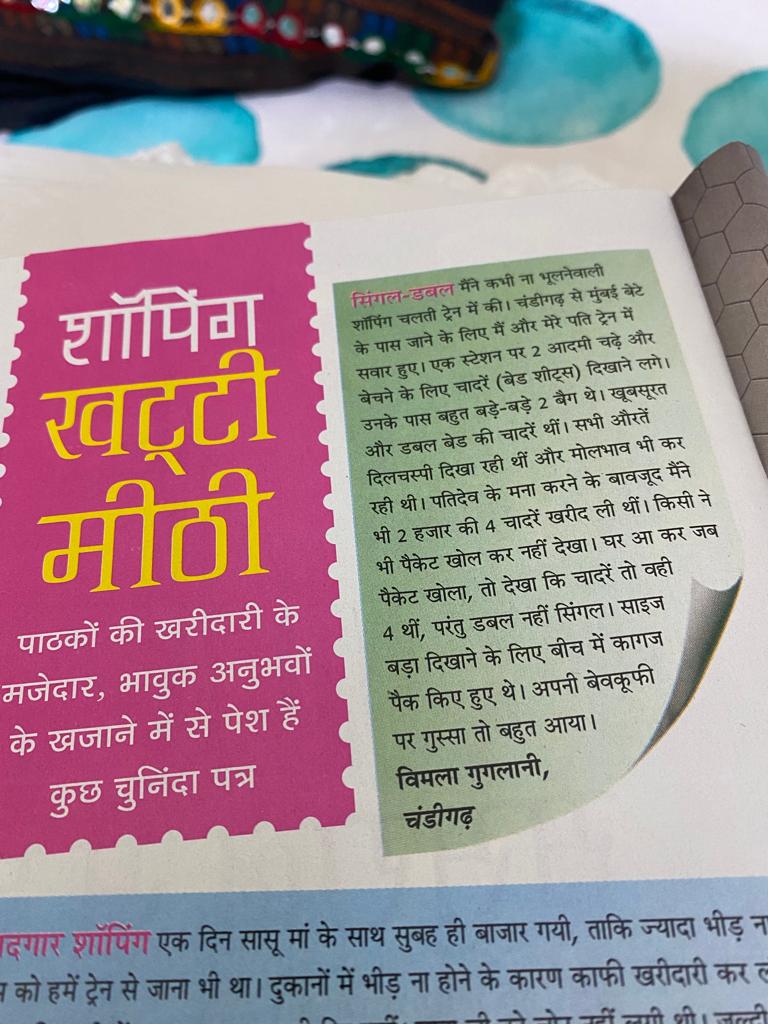 शॉपिंग
खट्टी
मीठी
पाठकों की खरीदारी के
मजेदार, भावुक अनुभवों
के खजाने में से पेश हैं
कुछ चुनिंदा पत्र
सिंगल-डबल मैंने कभी ना भूलनेवाली
शॉपिंग चलती ट्रेन में की। चंडीगढ़ से मुंबई बेटे
के पास जाने के लिए मैं और मेरे पति ट्रेन में
सवार हुए। एक स्टेशन पर 2 आदमी चढ़े और
बेचने के लिए चादरें (बेड शीट्स) दिखाने लगे।
उनके पास बहुत बड़े-बड़े 2 बैग थे। खूबसूरत
और डबल बेड की चादरें थीं। सभी औरतें
दिलचस्पी दिखा रही थीं और मोलभाव भी कर
रही थी। पतिदेव के मना करने के बावजूद मैंने
भी 2 हजार की 4 चादरें खरीद ली थीं। किसी ने
भी पैकेट खोल कर नहीं देखा। घर आ कर जब
पैकेट खोला, तो देखा कि चादरें तो वही
4 थीं, परंतु डबल नहीं सिंगल। साइज
बड़ा दिखाने के लिए बीच में कागज
पैक किए हुए थे। अपनी बेवकूफी
पर गुस्सा तो बहुत आया।
विमला गुगलानी,
चंडीगढ़
शॉपिंग एक दिन सासू मां के साथ सुबह ही बाजार गयी, ताकि ज्यादा भीड़
को हमें ट्रेन से जाना भी था। दुकानों में भीड़ ना होने के कारण काफी खरीदारी कर